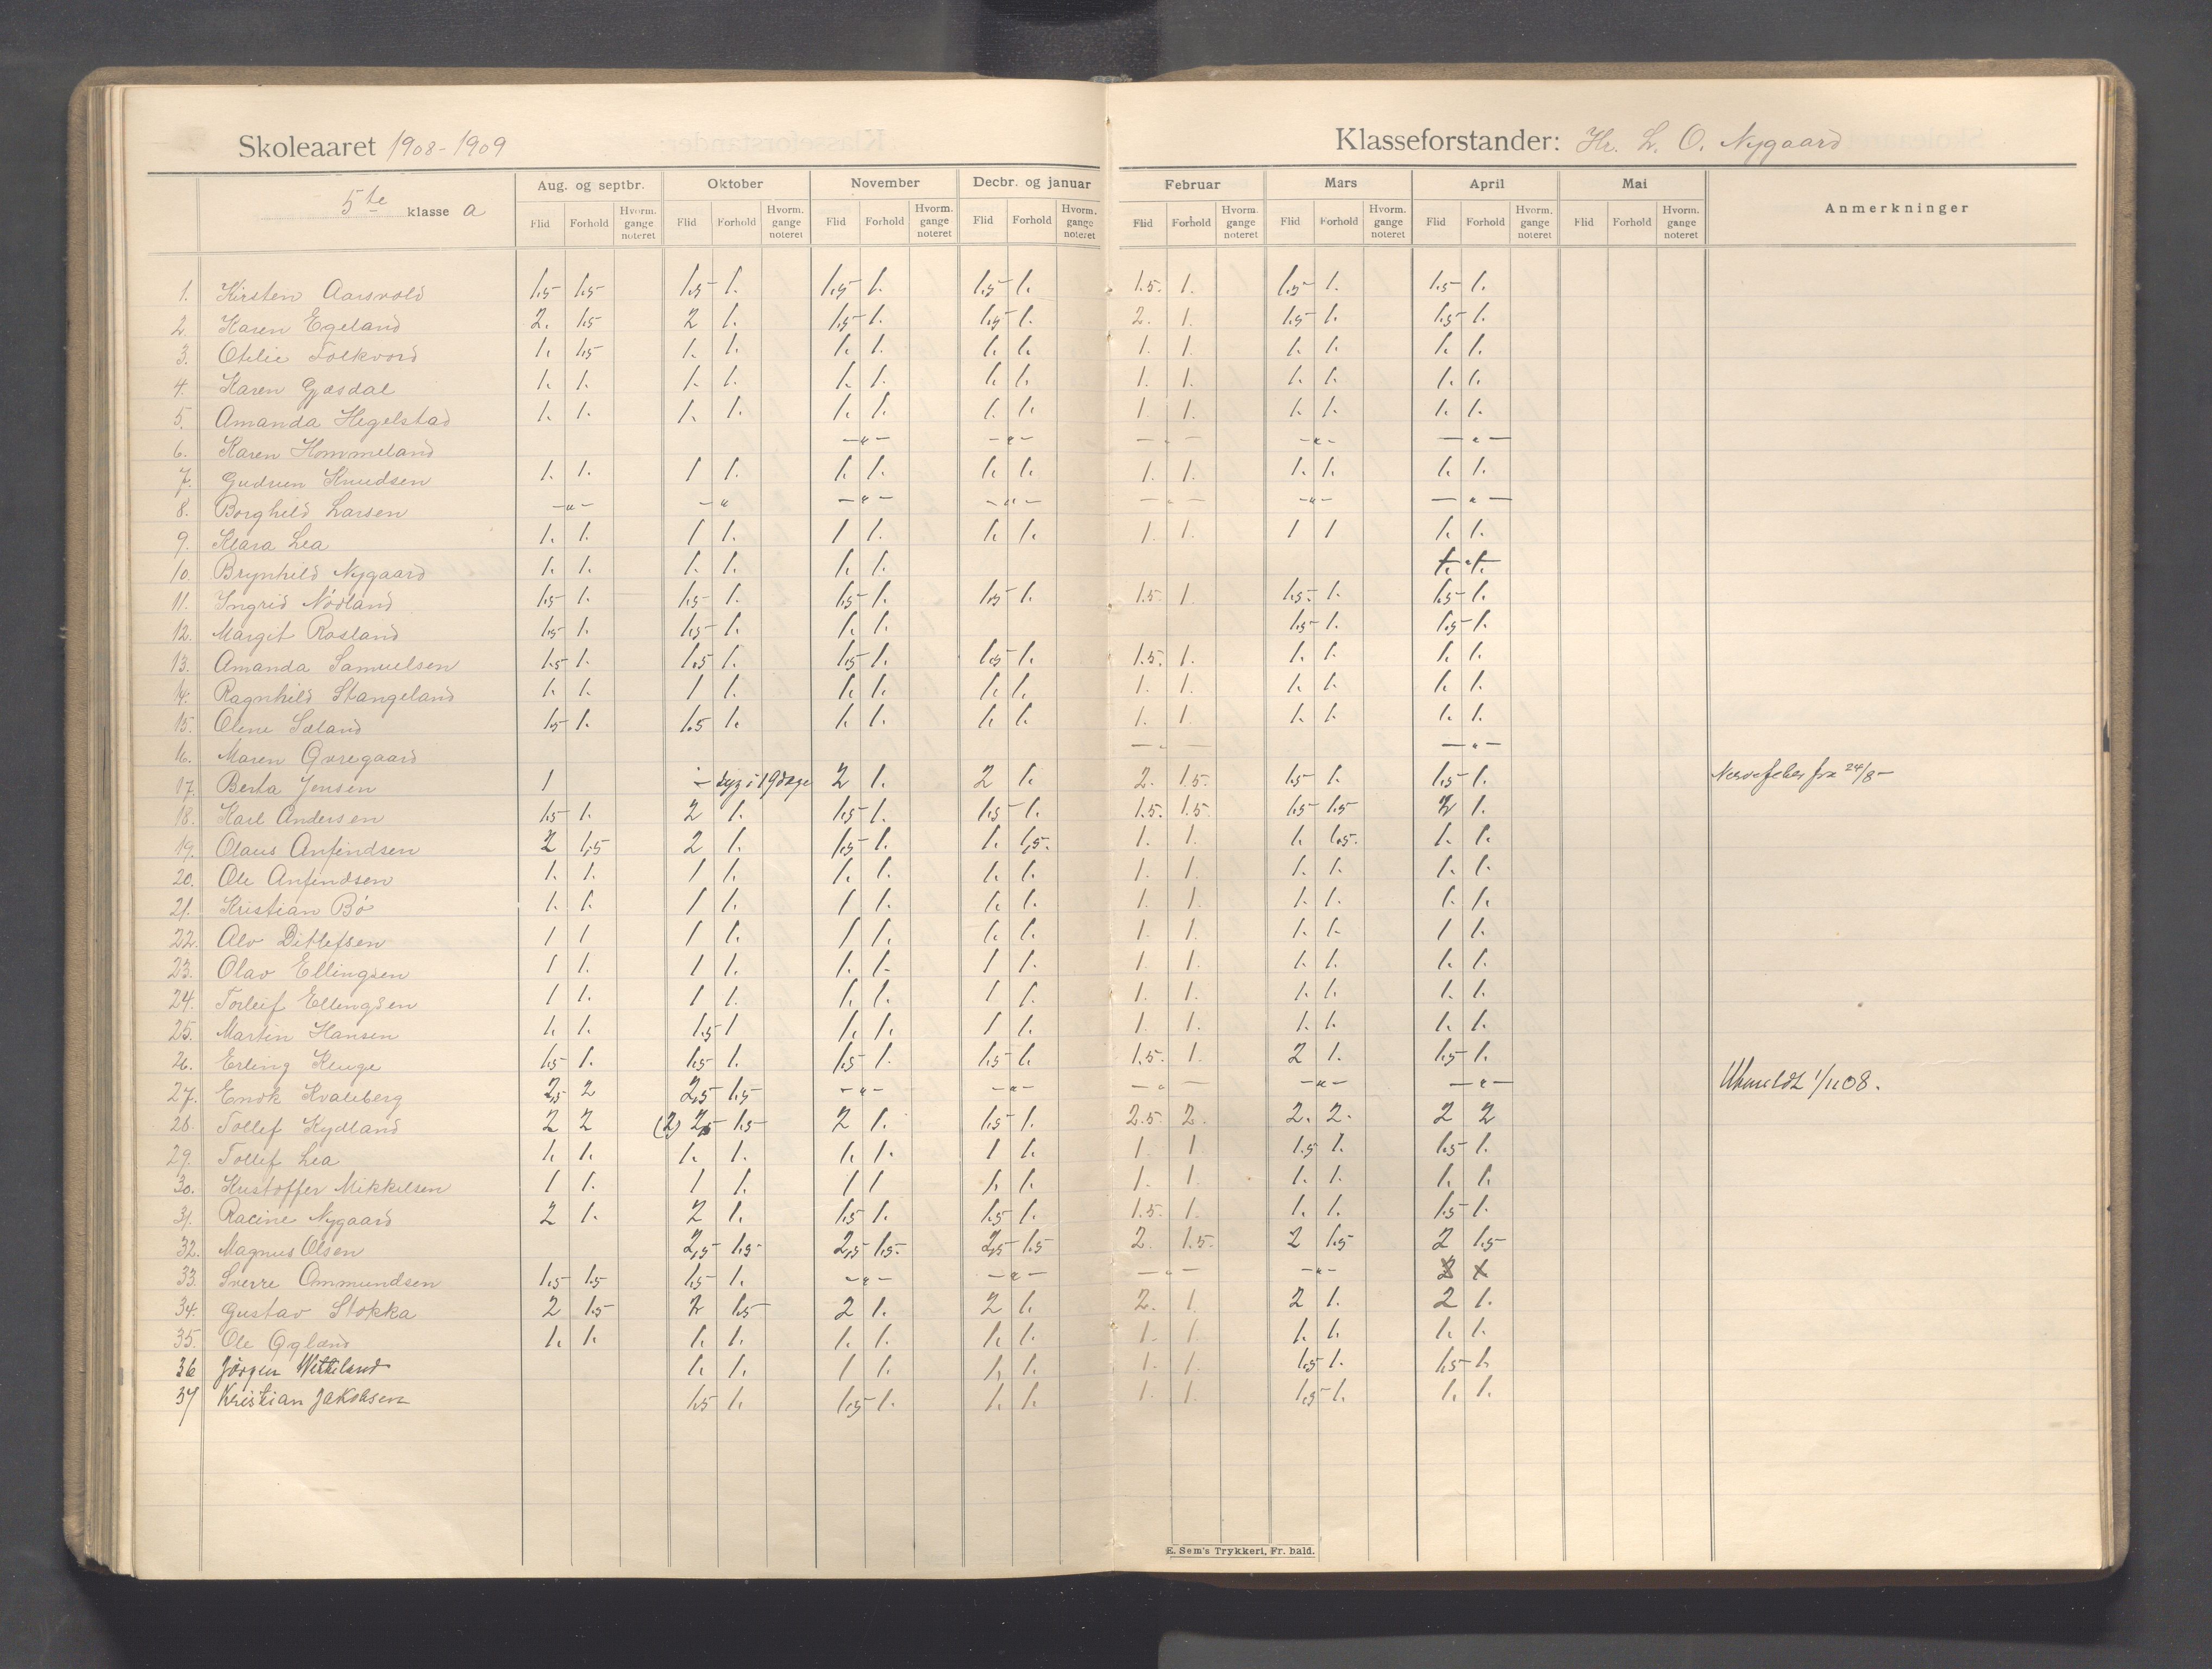 Skoleaaret 1908-1909
Klasseforstander: Hr. L. O. Nygaard
5te klasse a
Aug. og septbr. Oktober November Decbr. og januar Februar Mars April Mai Anmerkninger
Flid Forhold Hvorm. gange noteret Flid Forhold Hvorm. gange noteret Flid Forhold Hvorm. gange noteret Flid Forhold Hvorm. gange noteret Flid Forhold Hvorm. gange noteret Flid Forhold Hvorm. gange noteret Flid Forhold Hvorm. gange noteret Flid Forhold Hvorm. gange noteret
1. Kirsten Aarsvold 1.5 1.5 1.5 1. 1.5 1. 1.5 1. 1.5. 1. 1.5 1. 1.5 1.
2. Karen Egeland 2. 1.5 2 1. 1.5 1. 1.5 1. 2. 1. 1.5 1. 1.5 1.
3. Otelie Folkvord 1. 1.5 1. 1. 1. 1. 1. 1. 1. 1. 1. 1. 1. 1.
4. Karen Gjesdal 1. 1. 1. 1. 1. 1. 1. 1. 1. 1. 1. 1. 1. 1.
5. Amanda Hegelstad 1. 1. 1. 1. 1. 1. 1. 1. 1. 1. 1. 1. 1. 1.
6. Karen Hommeland -"- -"- -"- -"- -"-
7. Gudrun Knudsen 1. 1. 1 1. 1. 1. 1. 1. 1. 1. 1. 1. 1. 1.
8. Borghild Larsen -"- -" -"- -"- -"- -"- -"-
9. Klara Lea 1. 1. 1 1. 1 1. 1. 1. 1. 1. 1 1 1. 1.
10. Brynhild Nygaard 1. 1. 1. 1. 1. 1. 1. 1.
11. Ingrid Nödland 1.5 1. 1.5 1. 1.5 1. 1.5 1. 1.5. 1. 1.5. 1. 1.5 1.
12. Margit Rosland 1.5 1. 1.5 1. 1. 1. 1.5 1. 1.5 1.
13. Amanda Samuelsen 1.5 1. 1.5 1. 1.5 1. 1.5 1. 1.5. 1. 1. 1. 1. 1.
14. Ragnhild Stangeland 1. 1. 1 1. 1. 1. 1. 1. 1. 1. 1. 1. 1. 1.
15. Olene Sæland 1.5 1. 1.5 1. 1. 1. 1. 1. 1. 1. 1. 1. 1. 1.
16. Maren Qvregaard -"- -"-
17. Berta Jensen 1 - syg i 19 dage 2 1. 2 1. 2. 1.5. 1.5 1. 1.5 1. Nervefeber fra 24/8-
18. Karl Andersen 1.5 1. 2 1. 1.5 1. 1.5 1. 1.5. 1.5. 1.5 1.5 2 1.
19. Olaus Anfindsen 2 1.5 2 1. 1.5 1. 1. 1,5. 1. 1. 1. 1.5. 1. 1.
20. Ole Anfindsen 1. 1. 1 1. 1. 1. 1. 1. 1. 1. 1. 1. 1. 1.
21. Kristian Bö 1. 1. 1 1. 1 1. 1. 1. 1. 1. 1. 1. 1. 1.
22. Alv Ditlefsen 1 1 1 1. 1 1. 1. 1. 1. 1. 1. 1. 1 1.
23. Olav Ellingsen 1 1. 1 1. 1. 1. 1 1. 1. 1. 1. 1. 1. 1.
24. Torleif Ellingsen 1 1. 1 1. 1. 1. 1 1. 1. 1. 1. 1. 1. 1.
25. Martin Hansen 1. 1. 1.5 1 1. 1. 1 1. 1. 1. 1. 1. 1. 1.
26. Erling Kluge 1.5 1. 1.5 1. 1.5 1. 1.5 1. 1.5. 1. 2 1. 1.5 1.
27. Endk Kvaleberg 2,5 2 2,5 1.5 -"- -"- -"- -"- -"- Utmeldt 1/11 08.
28. Tollef Kydland 2 2 (2) 2,5 1.5 2 1. 1.5 1. 2.5. 2. 2. 2. 2 2
29. Tollef Lea 1. 1. 1. 1. 1. 1. 1 1. 1. 1 1.5 1. 1.5 1.
30. Kristoffer Mikkelsen 1 1. 1 1. 1 1 1. 1. 1. 1. 1. 1. 1. 1.
31. Racine Nygaard 2 1. 2 1. 1.5 1. 1.5 1. 1.5. 1. 1. 1. 1.5 1.
32. Magnus Olsen 2,5 1.5 2,5 1.5. 2,5 1.5 2. 1.5. 2 1.5 2 1.5
33. Sverre Ommundsen 1.5 1.5 1.5 1. -"- -"- -"- -"-
34. Gustav Stokka 2 1.5 2 1.5 2 1. 2 1. 2. 1. 2 1. 2 1.
35. Ole Ogland 1. 1. 1. 1. 1. 1. 1. 1. 1. 1. 1. 1. 1. 1.
36 Jörgen Wetteland 1. 1. 1 1. 1. 1. 1. 1. 1.5 1. 1.5 1.
37 Kristian Jakobsen 1.5 1. 1.5 1. 1. 1. 1. 1. 1.5 1. 1. 1.
E. Sem's Trykkeri, Fr. hald.